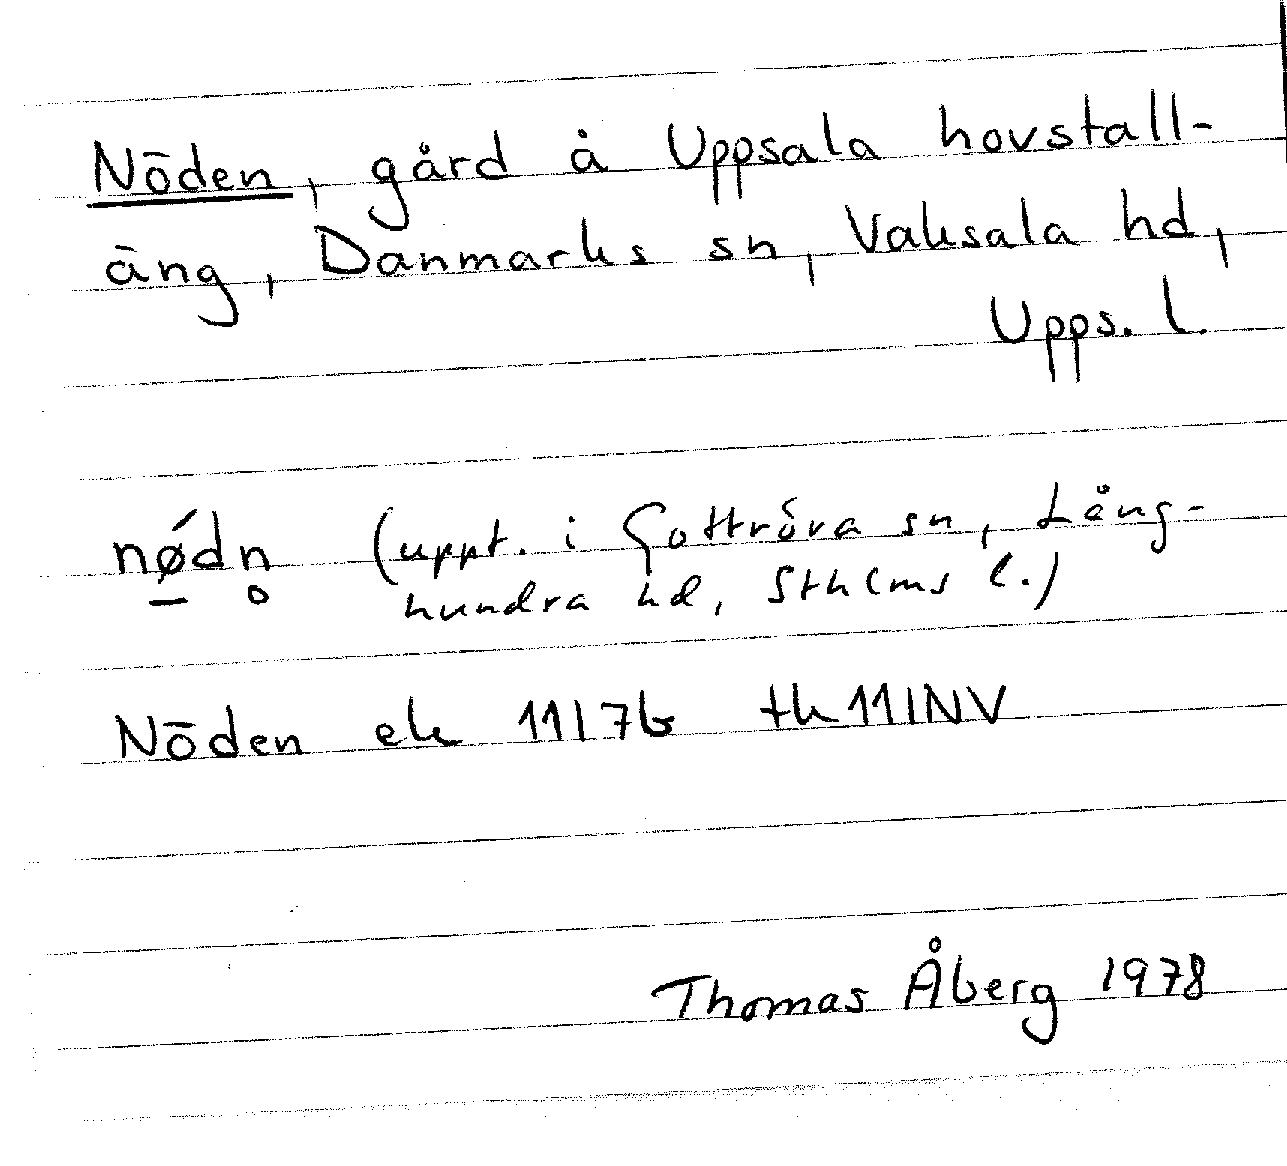 Nöden, gård å Uppsala hovstall-
äng, Danmarks sn, Vaksala hd,
Upps. l.
nǿ̱dn̥ (uppt. i Gottröra sn, Lång-
hundra hd, Sthlms l.)
Nöden ek 11I7b tk11INV
Thomas Åberg 1978